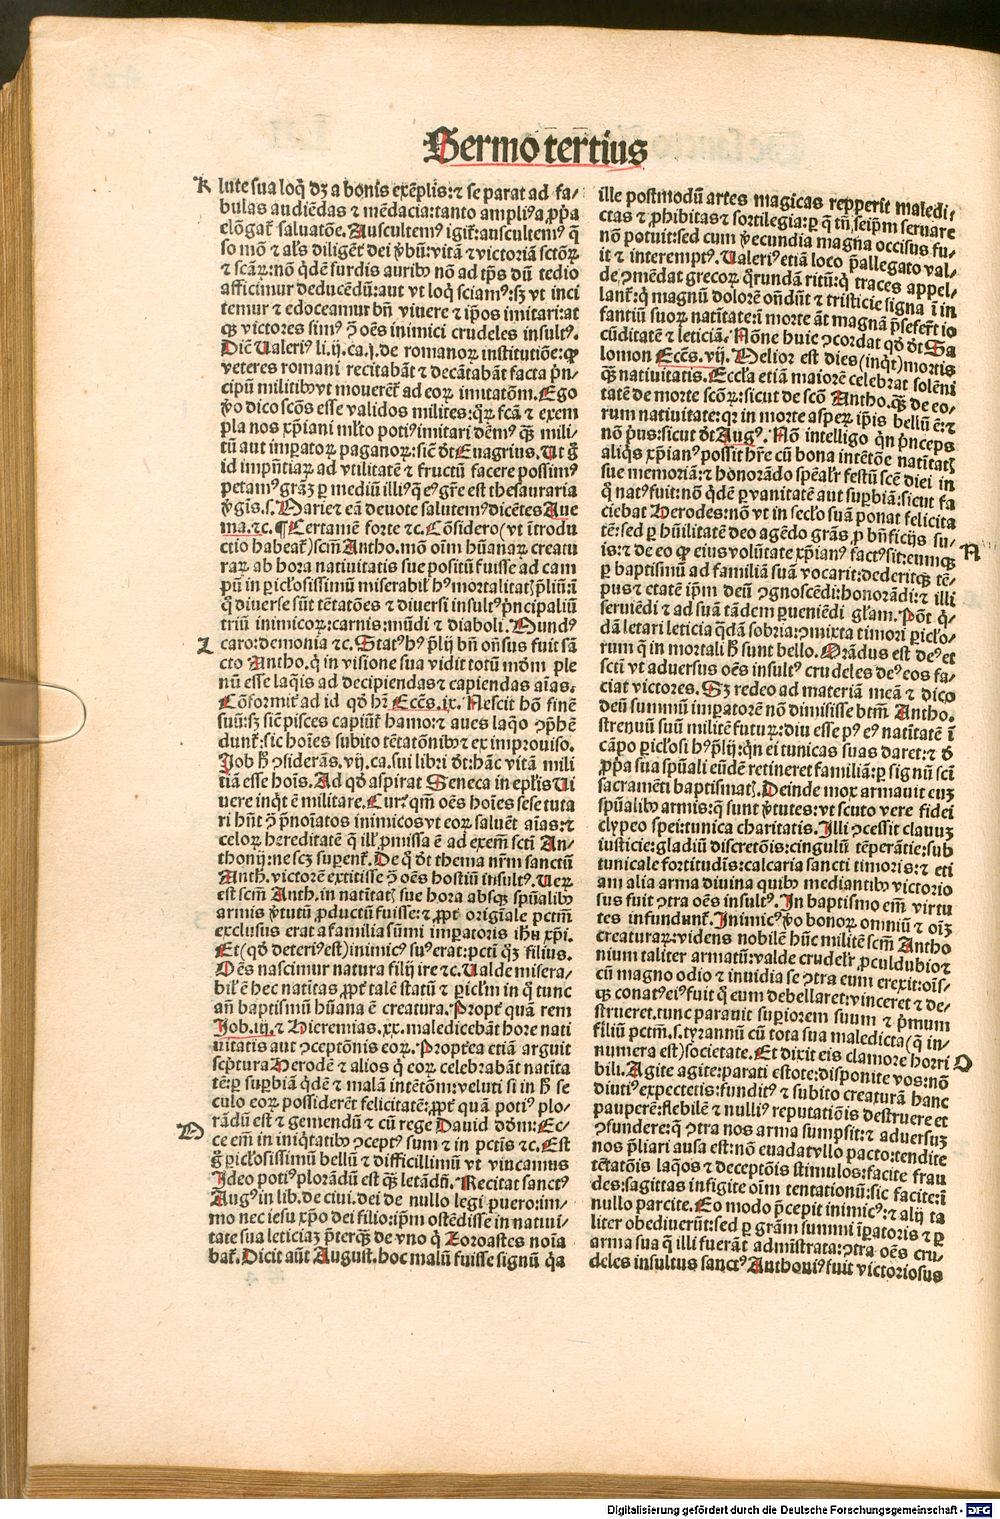 Sermo tertius
K
lute sua loqͥ dꝫ a bonis exēplis: ⁊ se parat ad fa⸗
bulas audiēdas ⁊ mēdacia: tanto ampliꝰ a ꝓp̄a
elōgat᷑ saluatōe. Auscultemꝰ igit᷑: auscultemꝰ q̄
so mō ⁊ al̓s diligēt᷑ dei v̓bū: vitā ⁊ victoriā sctōꝝ
⁊ scāꝝ: nō qͥdē surdis auribꝰ nō ad tp̄s dū tedio
afficimur deducēdū: aut vt loqͥ sciamꝰ: sꝫ vt inci
temur ⁊ edoceamur bn̄ viuere ⁊ ip̄os imitari: at
qꝫ victores simꝰ ↄ̄ oēs inimici crudeles insultꝰ.
Dic̄ Ualeriꝰ li. ij. ca. j. de romanoꝝ institutiōe: ꝙ
veteres romani recitabāt ⁊ decātabāt facta p̓n⸗
cipū militibꝰ vt mouerēt᷑ ad eoꝝ imitatōm. Ego
v̓o dico scōs esse validos milites: qͦꝝ fcā ⁊ exem
pla nos xp̄iani ml̓to potiꝰ imitari dēmꝰ qꝫ mili⸗
tū aut imꝑatoꝝ paganoꝝ: sic̄ d̓t Euagrius. Ut g̊
id imp̄ntiaꝝ ad vtilitatē ⁊ fructū facere possimꝰ
petamꝰ gr̄aꝫ ꝑ mediū illiꝰ q̄ eꝰ gr̄e est thesauraria
v̓gīs. s. Marie ⁊ eā deuote salutemꝰ dicētes Aue
ma. ⁊c. ¶ Certamē forte ⁊c. Cōsidero (vt ītrodu
ctio habeat᷑) scm̄ Antho. mō oīm hūanaꝝ creatu
raꝝ ab hora natiuitatis sue positū fuisse ad cam
pū in ꝑicl̓osissimū miserabil̓ hꝰ mortalitatꝭ p̓liū: ī
qͦ diuerse sūt tētatōes ⁊ diuersi insultꝰ p̓ncipaliū
triū inimicoꝝ: carnis: mūdi ⁊ diaboli. Mundꝰ
L
caro: demonia ⁊c. Statꝰ hꝰ p̓lij bn̄ on̄sus fuit sā
cto Antho. qͥ in visione sua vidit totū mōm ple
nū esse laqͥs ad decipiendas ⁊ capiendas aīas.
Cōformit᷑ ad id qd̓ hr̄ Ecc̄s. ix. Nescit hō finē
suū: sꝫ sic̄ pisces capiūt᷑ hamo: ⁊ aues laqͦ ↄp̓hē
dunt᷑: sic hoīes subito tētatōnibꝰ ⁊ ex improuiso.
Job h̓ ↄsiderās. vij. ca. sui lib: i d̓t: hāc vitā mili
tiā esse hoīs. Ad qd̓ aspirat Seneca in epl̓is Ui
uere inqͥt ē militare. Cur: qm̄ oēs hoīes sese tuta
ri hn̄t ↄ̄ p̄noīatos inimicos vt eoꝝ saluēt aīas: ⁊
celoꝝ hereditatē q̄ ill̓ ꝓmissa ē ad exem̄ scti An⸗
thonij: ne scꝫ suꝑent᷑. De qͦ d̓t thema nr̄m sanctū
Anth. victorē extitisse ↄ̄ oēs hostiū insultꝰ. Ueꝝ
est scm̄ Anth. in natītatꝭ sue hora absqꝫ spūalibꝰ
armis v̓tutū ꝓductū fuisse: ⁊ ꝓpt̓ origiāle pctm̄
exclusus erat a familia sūmi imꝑatoris ih̄u xp̄i.
Et (qd̓ deteriꝰ est) inimicꝰ suꝰ erat: pcti qꝫ filius.
Oēs nascimur natura filij ire ⁊c. Ualde misera⸗
bil̓ ē hec natītas ꝓpt̓ talē statū ⁊ ꝑicl̓m in qͦ tunc
an̄ baptismū hūana ē creatura. Propt̓ quā rem
Job. iij. ⁊ Hieremias. xx. maledicebāt hore nati
uitatis aut ↄceptōnis eoꝝ. Propt̓ea etiā arguit
scp̓tura Herodē ⁊ alios qͥ eoꝝ celebrabāt natīta
tē: ꝑ suꝑbiā qͥdē ⁊ malā intētōm: veluti si in h̓ se
culo eoꝝ possiderēt felicitatē: ꝓpt̓ quā potiꝰ plo⸗
M
rādū est ⁊ gemendū ⁊ cū rege Dauid dōm: Ec⸗
ce em̄ in iniqͥtatibꝰ ↄceptꝰ sum ⁊ in pctīs ⁊c. Est
g̊ ꝑicl̓osissimū bellū ⁊ difficillimū vt vincamus
Ideo potiꝰ plorādū est qꝫ letādū. Recitat sanctꝰ
Augꝰ in lib. de ciui. dei de nullo legi puero: im⸗
mo nec iesu xp̄o dei filio: ip̄m ostēdisse in natiui⸗
tate sua leticiaꝫ p̄terqꝫ de vno qͥ Zoroastes noīa
bat᷑. Dicit aūt August. hoc malū fuisse signū qͣ
ille postmodū artes magicas repperit maledi⸗
ctas ⁊ ꝓhibitas ⁊ sortilegia: ꝑ q̄ tn̄ seip̄m seruare
nō potuit: sed cum v̓ecundia magna occisus fu⸗
it ⁊ interemptꝰ. Ualeriꝰ etiā loco p̄allegato val⸗
de ↄmēdat grecoꝝ qͦrundā ritū: qͥ traces appel⸗
lant᷑: qͥ magnū dolorē on̄dūt ⁊ tristicie signa ī in
fantiū suoꝝ natītate: ī morte āt magnā p̄sefer̄t io
cūditatē ⁊ leticiā. Nōne huic ↄcordat qd̓ d̓t Sa
lomon Ecc̄s. vij. Melior est dies (inqͥt) mortis
qꝫ natiuitatis. Eccl̓a etiā maiorē celebrat solēni
tatē de morte scōꝝ: sicut de scō Antho. qꝫ de eo⸗
rum natiuitate: qꝛ in morte asꝑeꝝ ip̄is bellū ē: ⁊
nō p̓us: sicut d̓t Augꝰ. Nō intelligo qͥn p̓nceps
aliqͥs xp̄ianꝰ possit hr̄e cū bona intētōe natītatꝭ
sue memoriā: ⁊ honorādo speal̓r festū scē diei in
qͦ natꝰ fuit: nō qͥdē ꝑ vanitatē aut suꝑbiā: sicut fa
ciebat Herodes: nō vt in secl̓o suā ponat felicita
tē: sed ꝑ hūilitatē deo agēdo grās ꝓ bn̄ficijs su⸗
N
is: ⁊ de eo ꝙ eius volūtate xp̄ianꝰ factꝰ sit: eumqꝫ
ꝑ baptismū ad familiā suā vocarit: dederitqꝫ tē⸗
pus ⁊ etatē ip̄m deū ↄgnoscēdi: honorādi: ⁊ illi
seruiēdi ⁊ ad suā tādem ꝑueniēdi gl̓am. Pōt qͥ⸗
dā letari leticia qͣdā sobria: ↄmixta timori ꝑicl̓o⸗
rum qͥ in mortali h̓ sunt bello. Orādus est deꝰ et
scti vt aduersus oēs insultꝰ crudeles deꝰ eos fa⸗
ciat victores. Sꝫ redeo ad materiā meā ⁊ dico
deū summū imꝑatorē nō dimisisse btm̄ Antho.
strenuū suū militē futuꝝ: diu esse pꝰ eꝰ natītatē ī
cāpo ꝑicl̓osi hꝰ p̓lij: qͥn ei tunicas suas daret: ⁊ d̓
ꝓp̓a sua sp̄uali eūdē retineret familiā: ꝑ signū scti
sacramēti baptismatꝭ. Deinde mox armauit euꝫ
spūalibꝰ armis: q̄ sunt v̓tutes: vt scuto vere fidei
clypeo spei: tunica charitatis. Illi ↄcessit clauuꝫ
iusticie: gladiū discretōis: cingulū tēꝑātie: sub
tunicale fortitudīs: calcaria sancti timoris: ⁊ eti
am alia arma diuina quibꝰ mediantibꝰ victorio
sus fuit ↄtra oēs insultꝰ. In baptismo em̄ virtu
tes infundunt᷑. Inimicꝰ v̓o bonoꝝ omniū ⁊ oīꝫ
creaturaꝝ: videns nobilē hūc militē scm̄ Antho
nium taliter armatū: valde crudel̓r ꝓculdubio ⁊
cū magno odio ⁊ inuidia se ↄtra eum erexit: oīs⸗
qꝫ conatꝰ eiꝰ fuit qͥ eum debellaret: vinceret ⁊ de⸗
strueret. tunc parauit suꝑiorem suum ⁊ p̓mum
filiū pctm̄. s. tyrannū cū tota sua maledicta (q̄ in⸗
numera est) societate. Et dixit eis clamore horri
O
bili. Agite agite: parati estote: disponite vos: nō
diutiꝰ expectetis: funditꝰ ⁊ subito creaturā hanc
pauperē: flebilē ⁊ nulliꝰ reputatiōis destruere et
ↄfundere: q̄ ↄtra nos arma sumpsit: ⁊ aduersuꝫ
nos p̓liari ausa est: nō euadat vllo pacto: tendite
tētatōis laqͦs ⁊ deceptōis stimulos: facite frau
des: sagittas infigite oīm tentationū: sic facite: ī
nullo parcite. Eo modo p̄cepit inimicꝰ: ⁊ alij ta
liter obedierūt: sed ꝑ grām summi īꝑatoris ⁊ ꝑ
arma sua q̄ illi fuerāt admīstrata: ↄtra oēs cru⸗
deles insultus sanctꝰ Anthoniꝰ fuit victoriosus
Digitalisierung gefördert durch die Deutsche Forschungsgemeinschaft - DFG